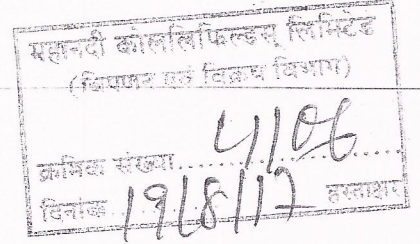 महानदी कोलफिल्डस् लिमिटेड
(विपणन एवं विक्रय विभाग)
क्रमिक संख्या.....................
दिनांक 19/8/17 हस्ताक्षर